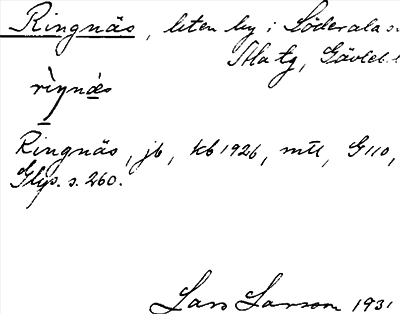 Ringnäs, liten by i Söderala s.
Ala tg, Gävleb. l
Ringnäs, jb, kb 1926, mtl, G110,
Glys. s. 260.
Lars Larson 1931